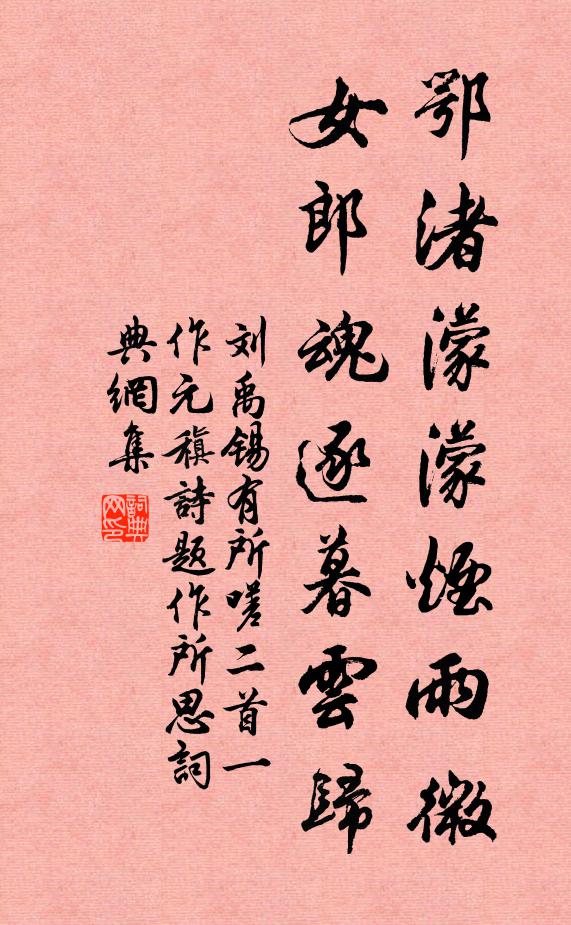 鄂渚濛濛煙雨微
女郎魂逐暮雲歸
刘禹锡有所嗟二首一
作元稹詩題作所思詞
典網集
詞典网印